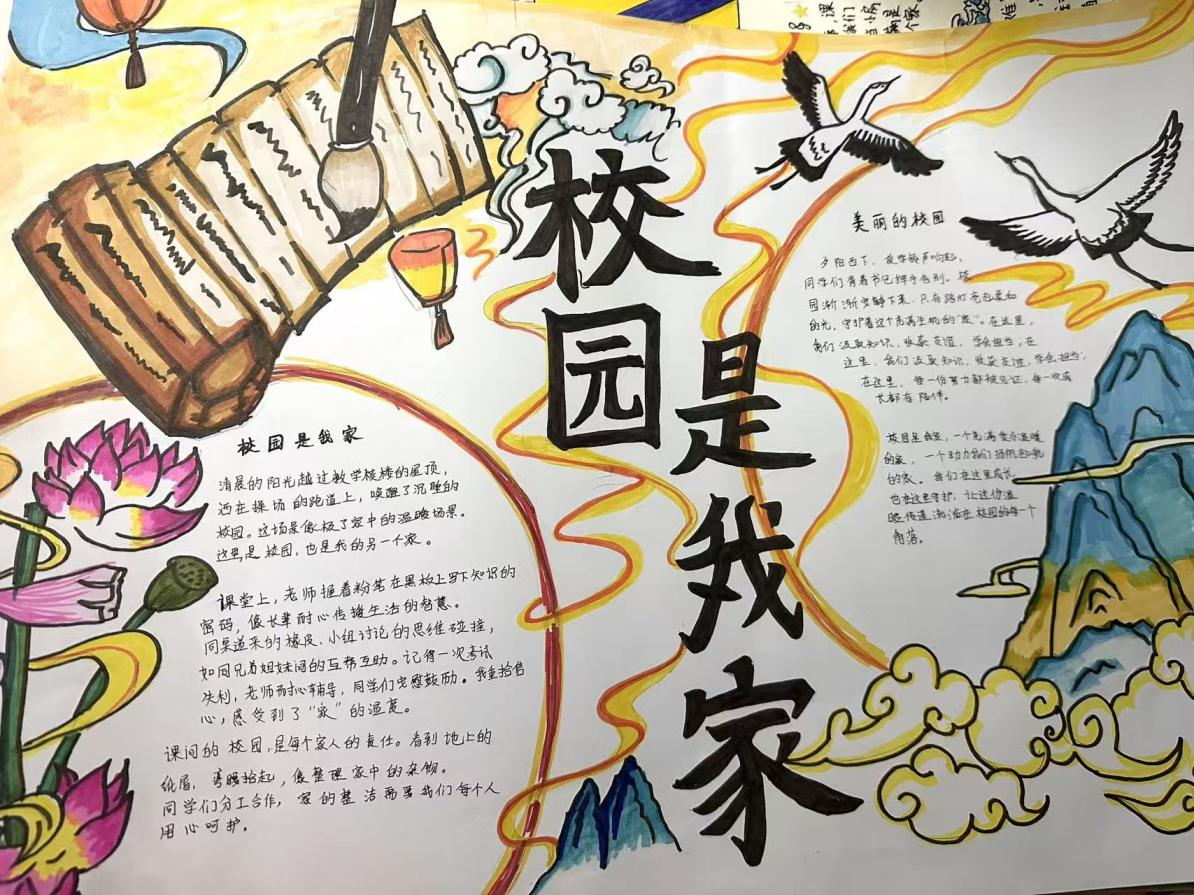 校园
是我家
校园是我家
清晨的阳光越过教学楼楼的屋顶,
洒在操场的跑道上,唤醒了沉睡的
校园。这场景像极了家中的温暖场景。
这里是校园,也是我的另一个家。
课堂上,老师握着粉笔在黑板上写下知识的
密码,像长辈耐心传授生活的智慧。
同桌递来的橡皮、小组讨论的思维碰撞,
如同兄弟姐妹间的互帮互助。记得一次考试
失利,老师耐心辅导,同学们安慰鼓励。我重拾信
心,感受到了“家”的温度。
课间的校园,是每个家人的责任。看到地上的
纸屑,弯腰拾起,像整理家中的杂物。
同学们分工合作,家的整洁需要我们每个人
用心呵护。
美丽的校园
夕阳西下,放学铃声响起,
同学们背着书包挥手告别。校
园渐渐安静下来,只有路灯亮起柔和
的光,守护着这个充满生机的“家”。在这里,
我们汲取知识,收获友谊,学会担当;在
这里,我们汲取知识,收获友谊,学会担当;
在这里,每一份努力都被见证,每一次成
长都有陪伴。
校园是我家,一个充满爱与温暖
的家,一个助力我们扬帆起航
的家。我们在这里成长,
也在这里守护,让这份温
暖传递,在校园的每一个
角落。